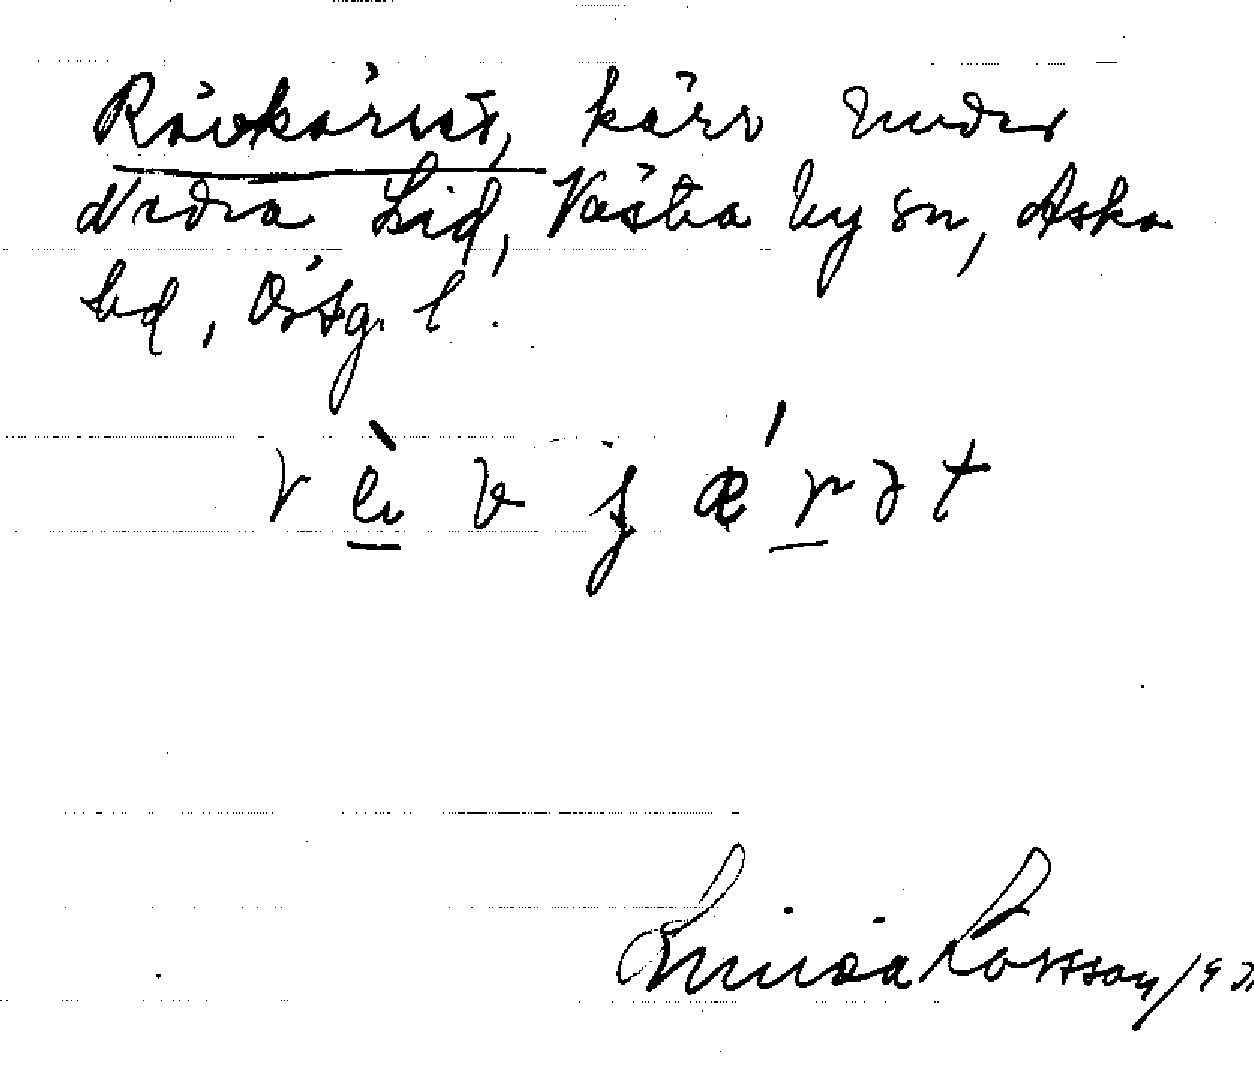 Rävkärret, kärr under
Nedra Lid, Västra Ny sn, Aska
hd, Östg. l.
r v ǽ r ə t
Linnéa Larsson/